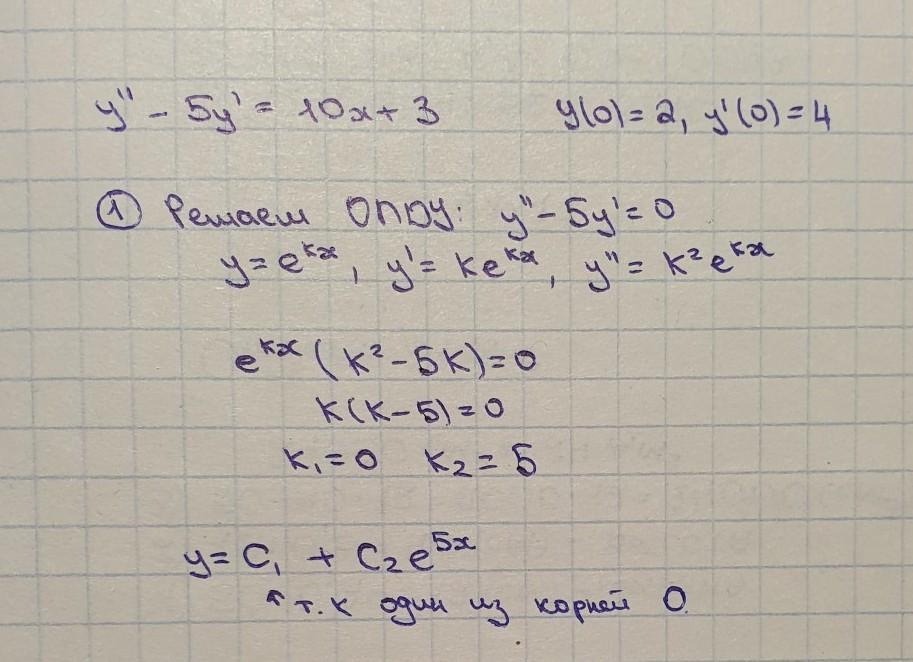 y'' - 5y' = 10x + 3 y(0) = 2, y'(0) = 4
① Решаем ОЛДУ: y'' - 5y' = 0
y = e^{kx}, y' = ke^{kx}, y'' = k²e^{kx}
e^{kx} (k² - 5k) = 0
k(k - 5) = 0
k₁ = 0 k₂ = 5
y = C₁ + C₂e^{5x}
↑ т.к один из корней 0